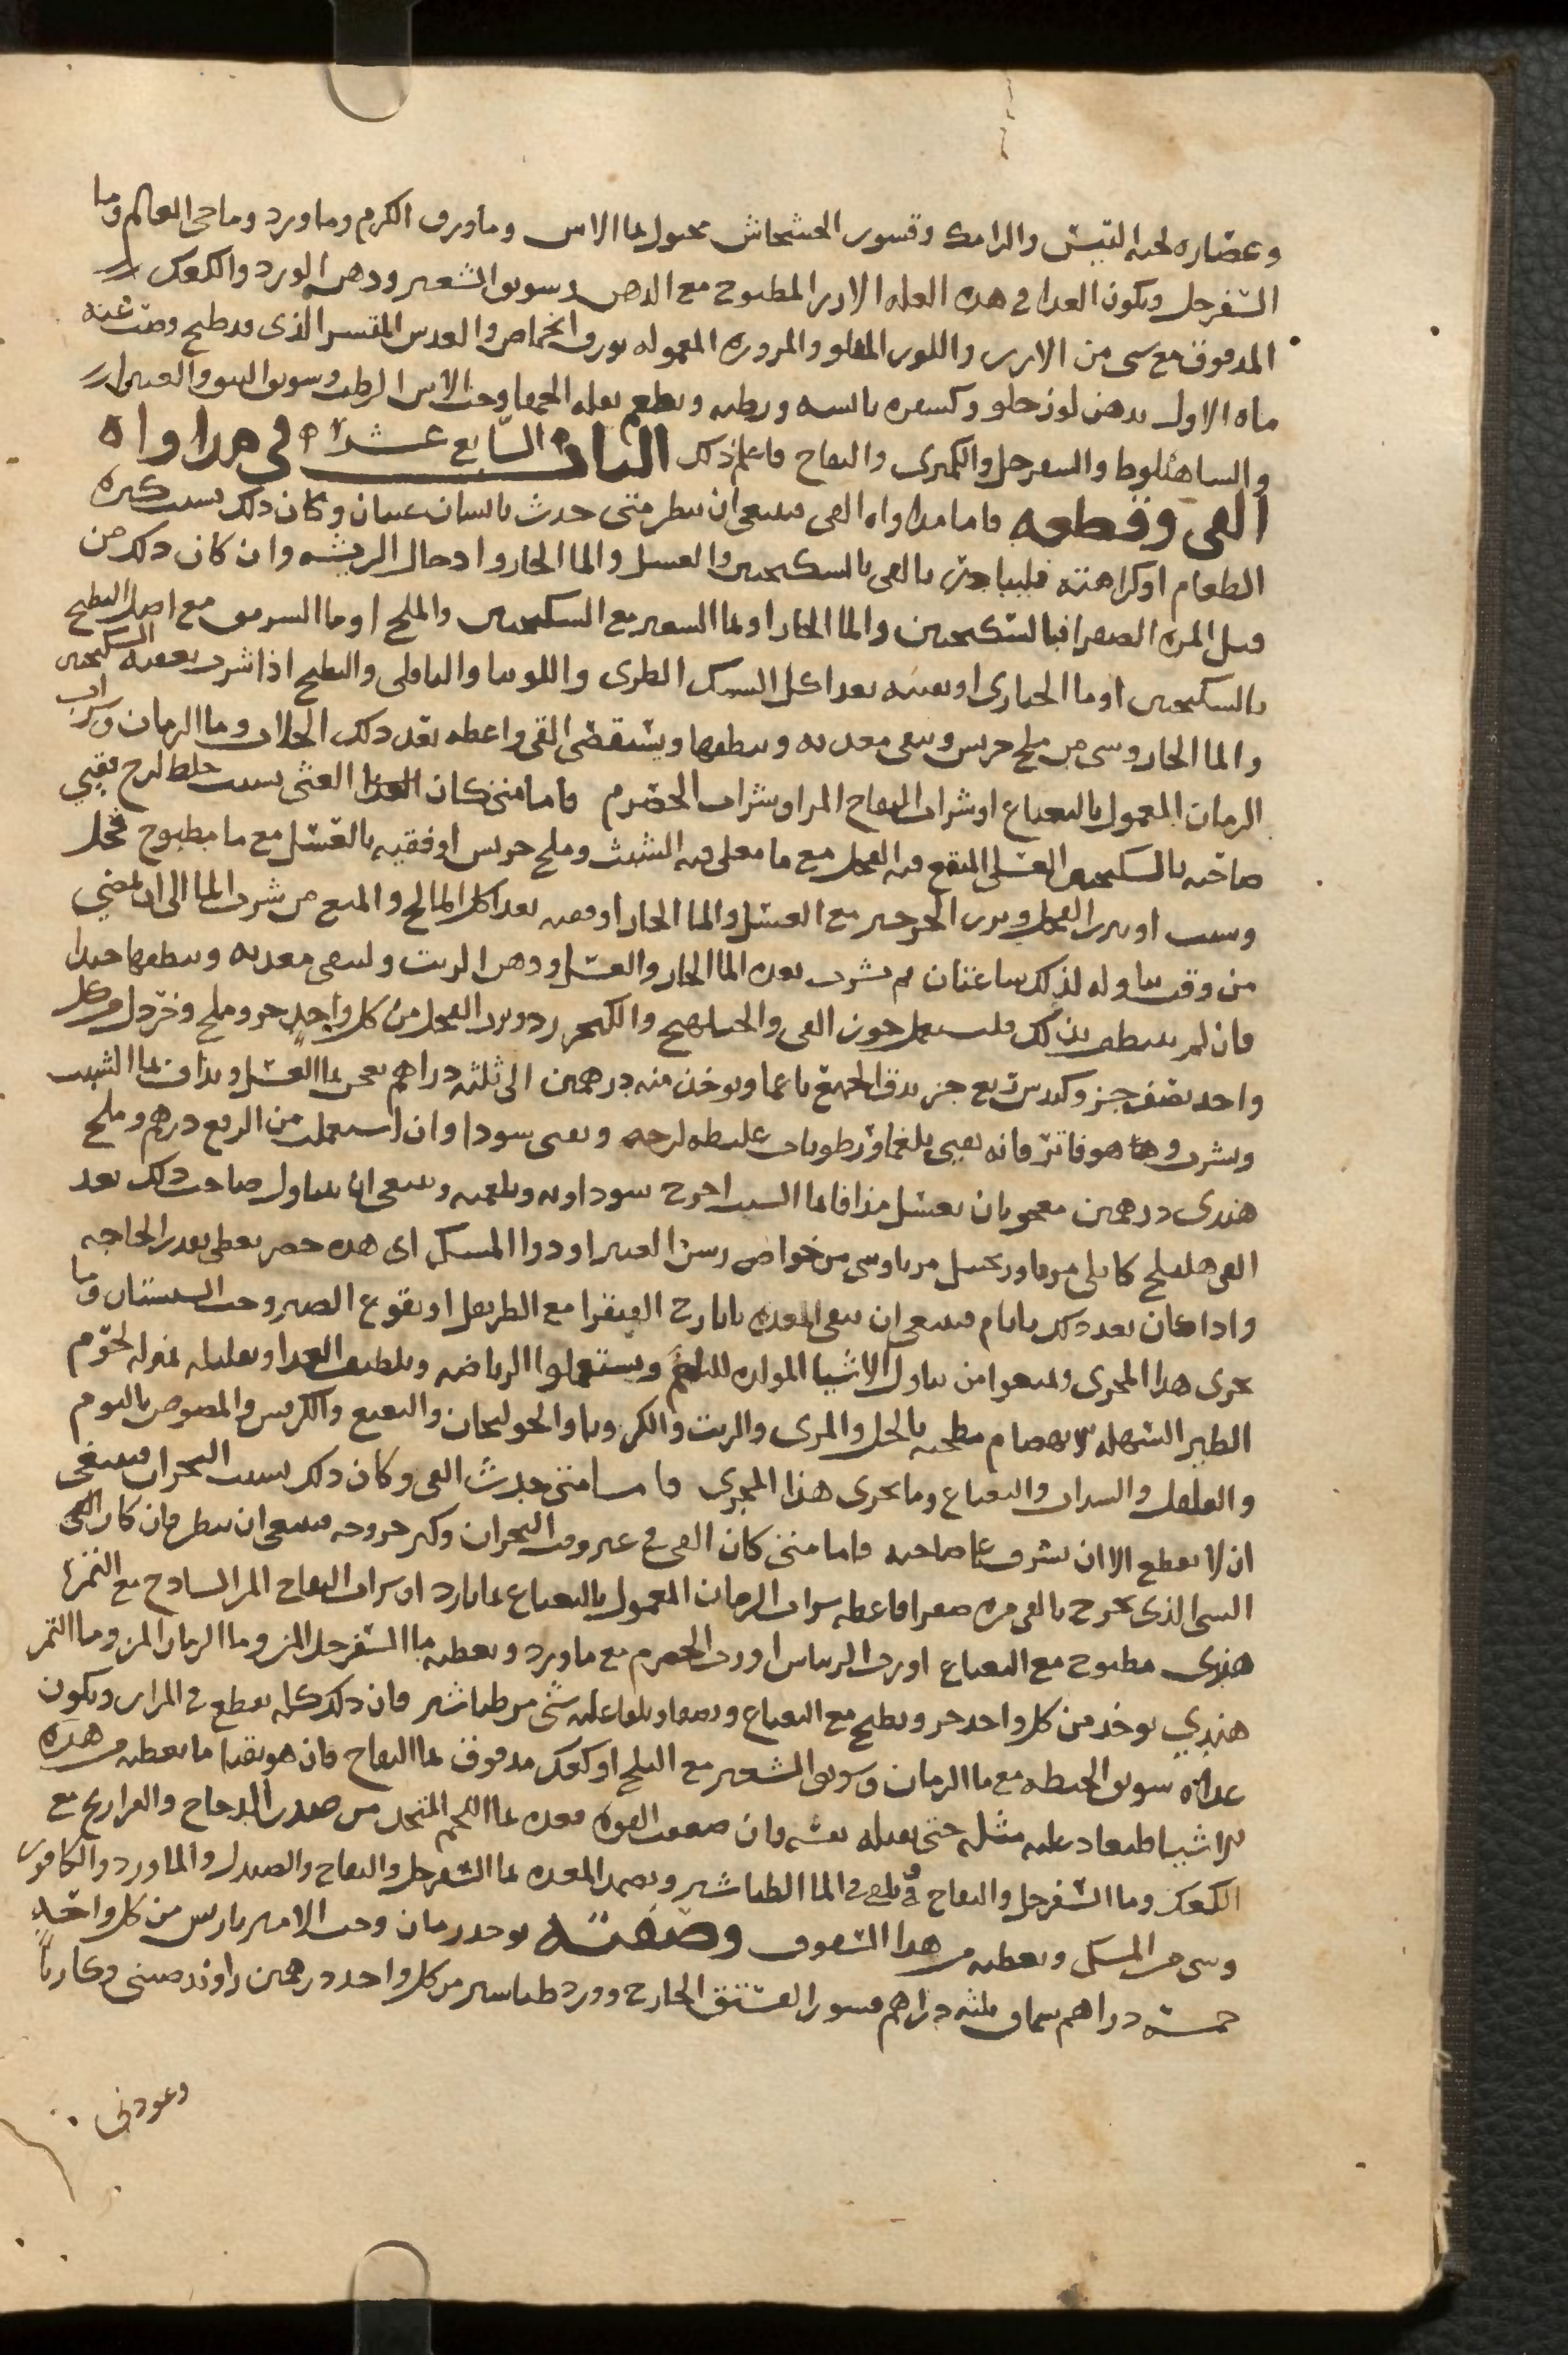 وعصاره لحيه التيس والرامك وقسور الخشخاش معجول بما الاس وما ورق الكرم وما ورد وما حى العالم وما
السفرجل ويكون الغدا فى هده العله الارر المطبوخ مع الدهن وسويق الشعير ودهن الورد والكعك
المدقوق مع سى من الارر واللوز المقلو والمزوره المعموله بورق الحماض والعدس المقشر الذى قد طبخ وصب عنه
ماه الاول بدهن لوز حلو وكسفره يابسه ورطبه ويطعم بقله الحمقا وحب الاس الرطب وسويق النبق والغبيرا
والساهبلوط والسفرجل والكمثرى والتفاح فاعلم ذلك الباب السابع عشر فى مداواه
القى وقطعه فاما مداواه القى فينبغى ان ينظر متى حدث بالانسان غثيان وكان ذلك بسبب كثره
الطعام او كراهته فليبادر بالقى بالسكنجبين والعسل والما الحار وادخال الريشه وان كان ذلك من
قبل المره الصفرا فبالسكنجبين والما الحار او بما الشعير مع السكنجبين والملح او ما السرمق مع اصل البطيخ
بالسكنجبين او ما الخبازى او بقيه بعد اكل السمك الطرى واللوبيا والباقلى والبطيخ اذا شرب بعده السكنجبين
والما الحار وسى من ملح جريش وينقى معدته وينظفها ويستقصى القى واعطه بعد ذلك الجلاب وما الرمان وشراب
الرمان المعمول بالنعناع او شراب التفاح المر او شراب الحصرم فاما متى كان الغثى بسبب خلط لزج فقيى
صاحبه بالسكنجبين العسلى المنقع فيه الفجل مع ما مغلى فيه الشبث وملح جريش او فقيه بالعسل مع ما مطبوخ فجل
وشبث او ببزر الفجل وبزر الجرجير مع العسل والما الحار او فقيه بعد اكل المالح والمنع من شرب الما الى ان يمضى
من وقت تناوله لذلك ساعتان ثم يشرب بعده الما الحار والعسل ودهن الزيت ولينقى معدته وينظفها جيدا
فان لم ينظف بذلك فليستعمل جوز القى والجبلهنج والكنجر زد وبزر الفجل من كل واحد جز وملح وخردل من كل
واحد نصف جز وكندس ربع جز يدق الجميع ناعما ويوخذ منه درهمين الى ثلثه دراهم يعجن بما العسل ويداف بما الشبث
ويشرب وهو فاتر فانه يقيى بلغما ورطوبات غليظه لزجه ويقى سودا وان استعملت من الربع درهم وملح
هندى درهمين معجونان بعسل مذافا بما الشبث اخرج سوداويه وبلغميه وينبغى ان يتناول صاحب ذلك بعد
القى هليلج كابلى مربا وزنجبيل مربا وسى من خواص رسن العنبر او دوا المسك اى هده حضر يعطى بقدر الحاجه
واذا كان بعد ذلك بايام فينبغى ان ينقى المعده بايارج الفيقرا مع الطريفل او نقوع الصبر وحب السبستان وما
يجرى هدا المجرى ويمنعوا من تناول الاشيا المولده للبلغم ويستعملوا الرياضه وتلطيف الغدا وتقليله بمنزله لحوم
الطير السهله الانهضام مطجنه بالخل والمرى والزيت والكرويا والخولنجان والنعنع والكرفس والمصوص بالثوم
والفلفل والسداب والنعناع وما يجرى هذا المجرى فاما متى حدث القى وكان ذلك بسبب البحران فينبغى
ان لا يقطع الا ان يشرف على صاحبه فاما متى كان القى فى غير وقت البحران وكثر خروجه فينبغى ان ينظر فان كان القى
السى الذى يخرج بالقى مره صفرا فاعطه شراب الرمان المعمول بالنعناع بما بارد او شراب التفاح المر الساذج مع التمر
هندى مطبوخ مع النعناع او رب الريباس او رب الحصرم مع ما ورد ويعطيه ما السفرجل المز وما الرمان المز وما التمر
هندى يوخذ من كل واحد جز ويطبخ مع النعناع ويصفا ويلقا عليه شى من طباشير فان ذلك كله يقطع فى المرار ويكون
غداه سويق الحنطه مع ما الرمان وسويق الشعير مع الثلج او كعك مدقوق بما التفاح فان هو تقيا ما يعطيه من هذه
الاشيا فليعاد عليه مثله حتى تقبله نفسه فان ضعفت القوه فغده بما اللحم المتخذ من صدر الدجاج والفراريج مع
الكعك وما السفرجل والتفاح ويلقى فى الما الطباشير ويضمد المعده بما السفرجل والتفاح والصندل والماورد والكافور
وسى من المسك ويعطيه من هدا السفوف وصفته يوخد رمان وحب الامير باريس من كل واحد
خمسه دراهم سماق ثلثه دراهم قسور الفستق الخارج وورد طباسير من كل واحد درهمين راوند صينى وكاربا
وعود نى